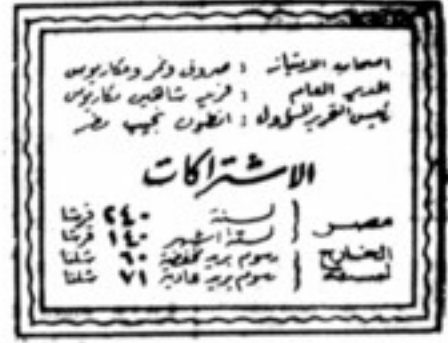 اصحاب الامتياز : صروف ونمر ومكاريوس
المدير العام : فريد شاهين مكاريوس
رئيس التحرير المسؤول : انطون نجيب مطر
الاشتراكات
مصر ( لسنة ٢٤٠ قرشا
لستة اشهر ١٤٠ قرشا
الخارج ( رسوم بريد مخفضة ٦٠ شلنا
لسنة رسوم بريد عادية ٧١ شلنا